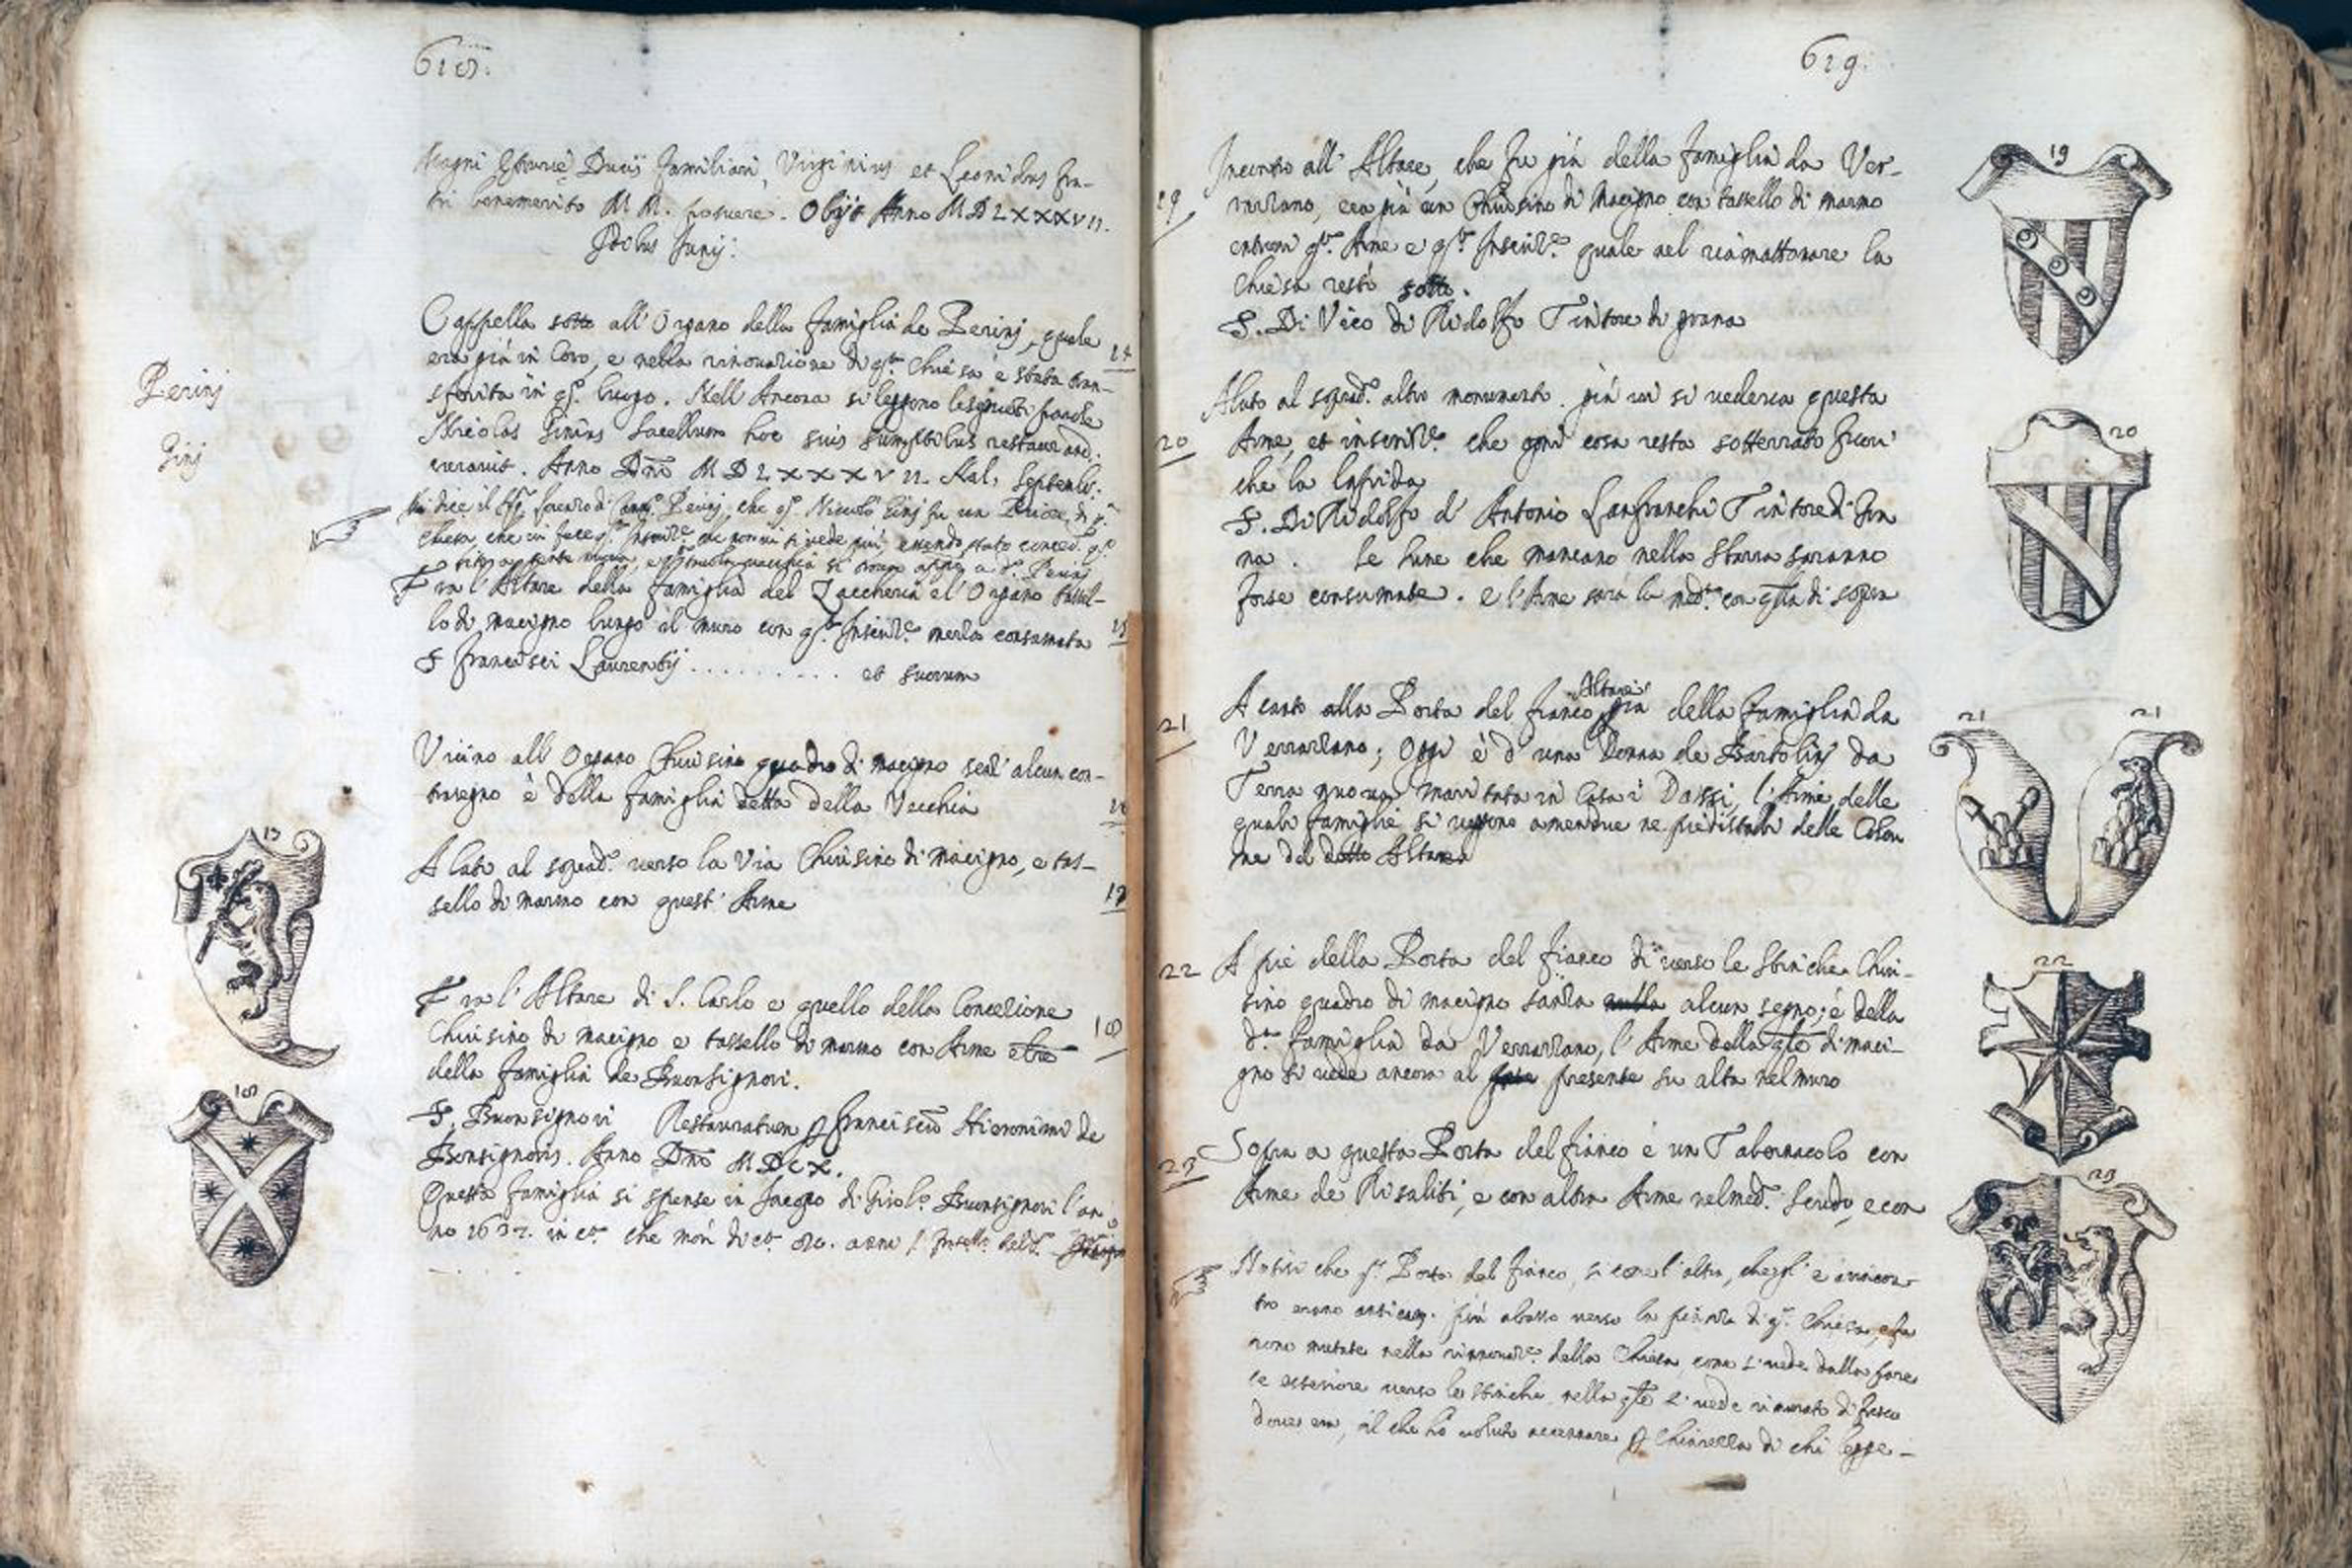 618.
Magni Etrurie Ducis familiari, Virginius et Leonidas fra-
tri benemerito M M. posuere. Obijt Anno M D L X X X V II.
Idibus Junij:
Cappella sotto all' Organo della famiglia de Perinj, quale
era già in Coro, e nella rinouazione di qta. Chiesa è stata tran-
sferita in qo. luogo. Nell' Ancora si leggono le seguenti parole
Nicolas Ginius Sacellum hoc suis sumptibus restaurand.
curauit. Anno Dno M D L X X X V II. Kal. Septemb:
Perinj
Ginj
14
Mi dice il Sig. Lorenzo di Perinj, che qo. Niccolò Ginj fu un Priore, di qa.
chiesa, che ui fece qa. Inscrize. che non ui si uede più, essendo stato conced. qo.
Fra l' Altare della famiglia del Zaccheria e l' Organo tassel-
lo di macigno lungo il muro con qta. Inscrize. mezza consumata
S Francisci Laurentij .......... et suorum
15
Vicino all' Organo Chiusino quadro di macigno senz' alcun con-
trasegno è della famiglia detta della Vecchia
16
A lato al sopradº. verso la Via Chiusino di macigno, e tas-
sello di marmo con quest' Arme
17
17
Fra l' Altare di S. Carlo e quello della Concezione
Chiusino di macigno e tassello di marmo con Arme etre
della famiglia de Buonsignori.
18
18
S. Buonsignori Restauratum p Franciscum Hieronimi de
Bonsignoris. Anno Dno M D C X.
Questa famiglia si spense in Jacopo di Girolº. Buonsignori l' an
no 1637. in che morì
619.
Incontro all' Altare, che fu già della famiglia da Ver-
razzano, era già un Chiusino di Macigno con tassello di marmo
entroui qta. Arme e qta. Inscrize. quale nel riamattonare la
Chiesa restò sotto.
S. Di Vico di Ridolfo Tintore di grana
19
19
Alato al sopradº. altro monumento. già ui si uedeua questa
Arme, et inscrize. che ogni cosa resta sotterrato fuori
che la lapida
S. Di Ridolfo d' Antonio Lanfranchi Tintore di gra
na. Le lune che mancano nella sbarra saranno
forse consumate. e l' Arme sarà la medma. con qlla di sopra
20
20
Acanto alla Porta del fianco Altare già della famiglia da
Verrazzano; Oggi è d' una Donna de Bartolinj da
Terra nuoua maritata in Casa i Dazzi, l' Arme delle
quali famiglie si ueggono amendue ne piedistalli delle Colon
ne del detto Altare
21
21 21
A piè della Porta del fianco di uerso le Stinche Chiu-
sino quadro di macigno sanza alcun segno; è della
da. famiglia da Verrazzano, l' Arme della qle di maci-
gno si uede ancora al presente su alta nel muro
22
22
Sopra a questa Porta del fianco è un Tabernacolo con
Arme de Risaliti, e con altra Arme nel medº. Scudo, e con
23
23
Notisi che qa. Porta del fianco, si come l' altra, che gl' è rincon-
tro erano anticam. più abasso uerso la piazza di qa. Chiesa, e fu
rono mutate nella rinnouaze. della Chiesa, come si uede dalla parte
esteriore uerso le Stinche nella qle si uede rimurato di fresco
doue era, il che hò uoluto accennare p chiarezza di chi legge-